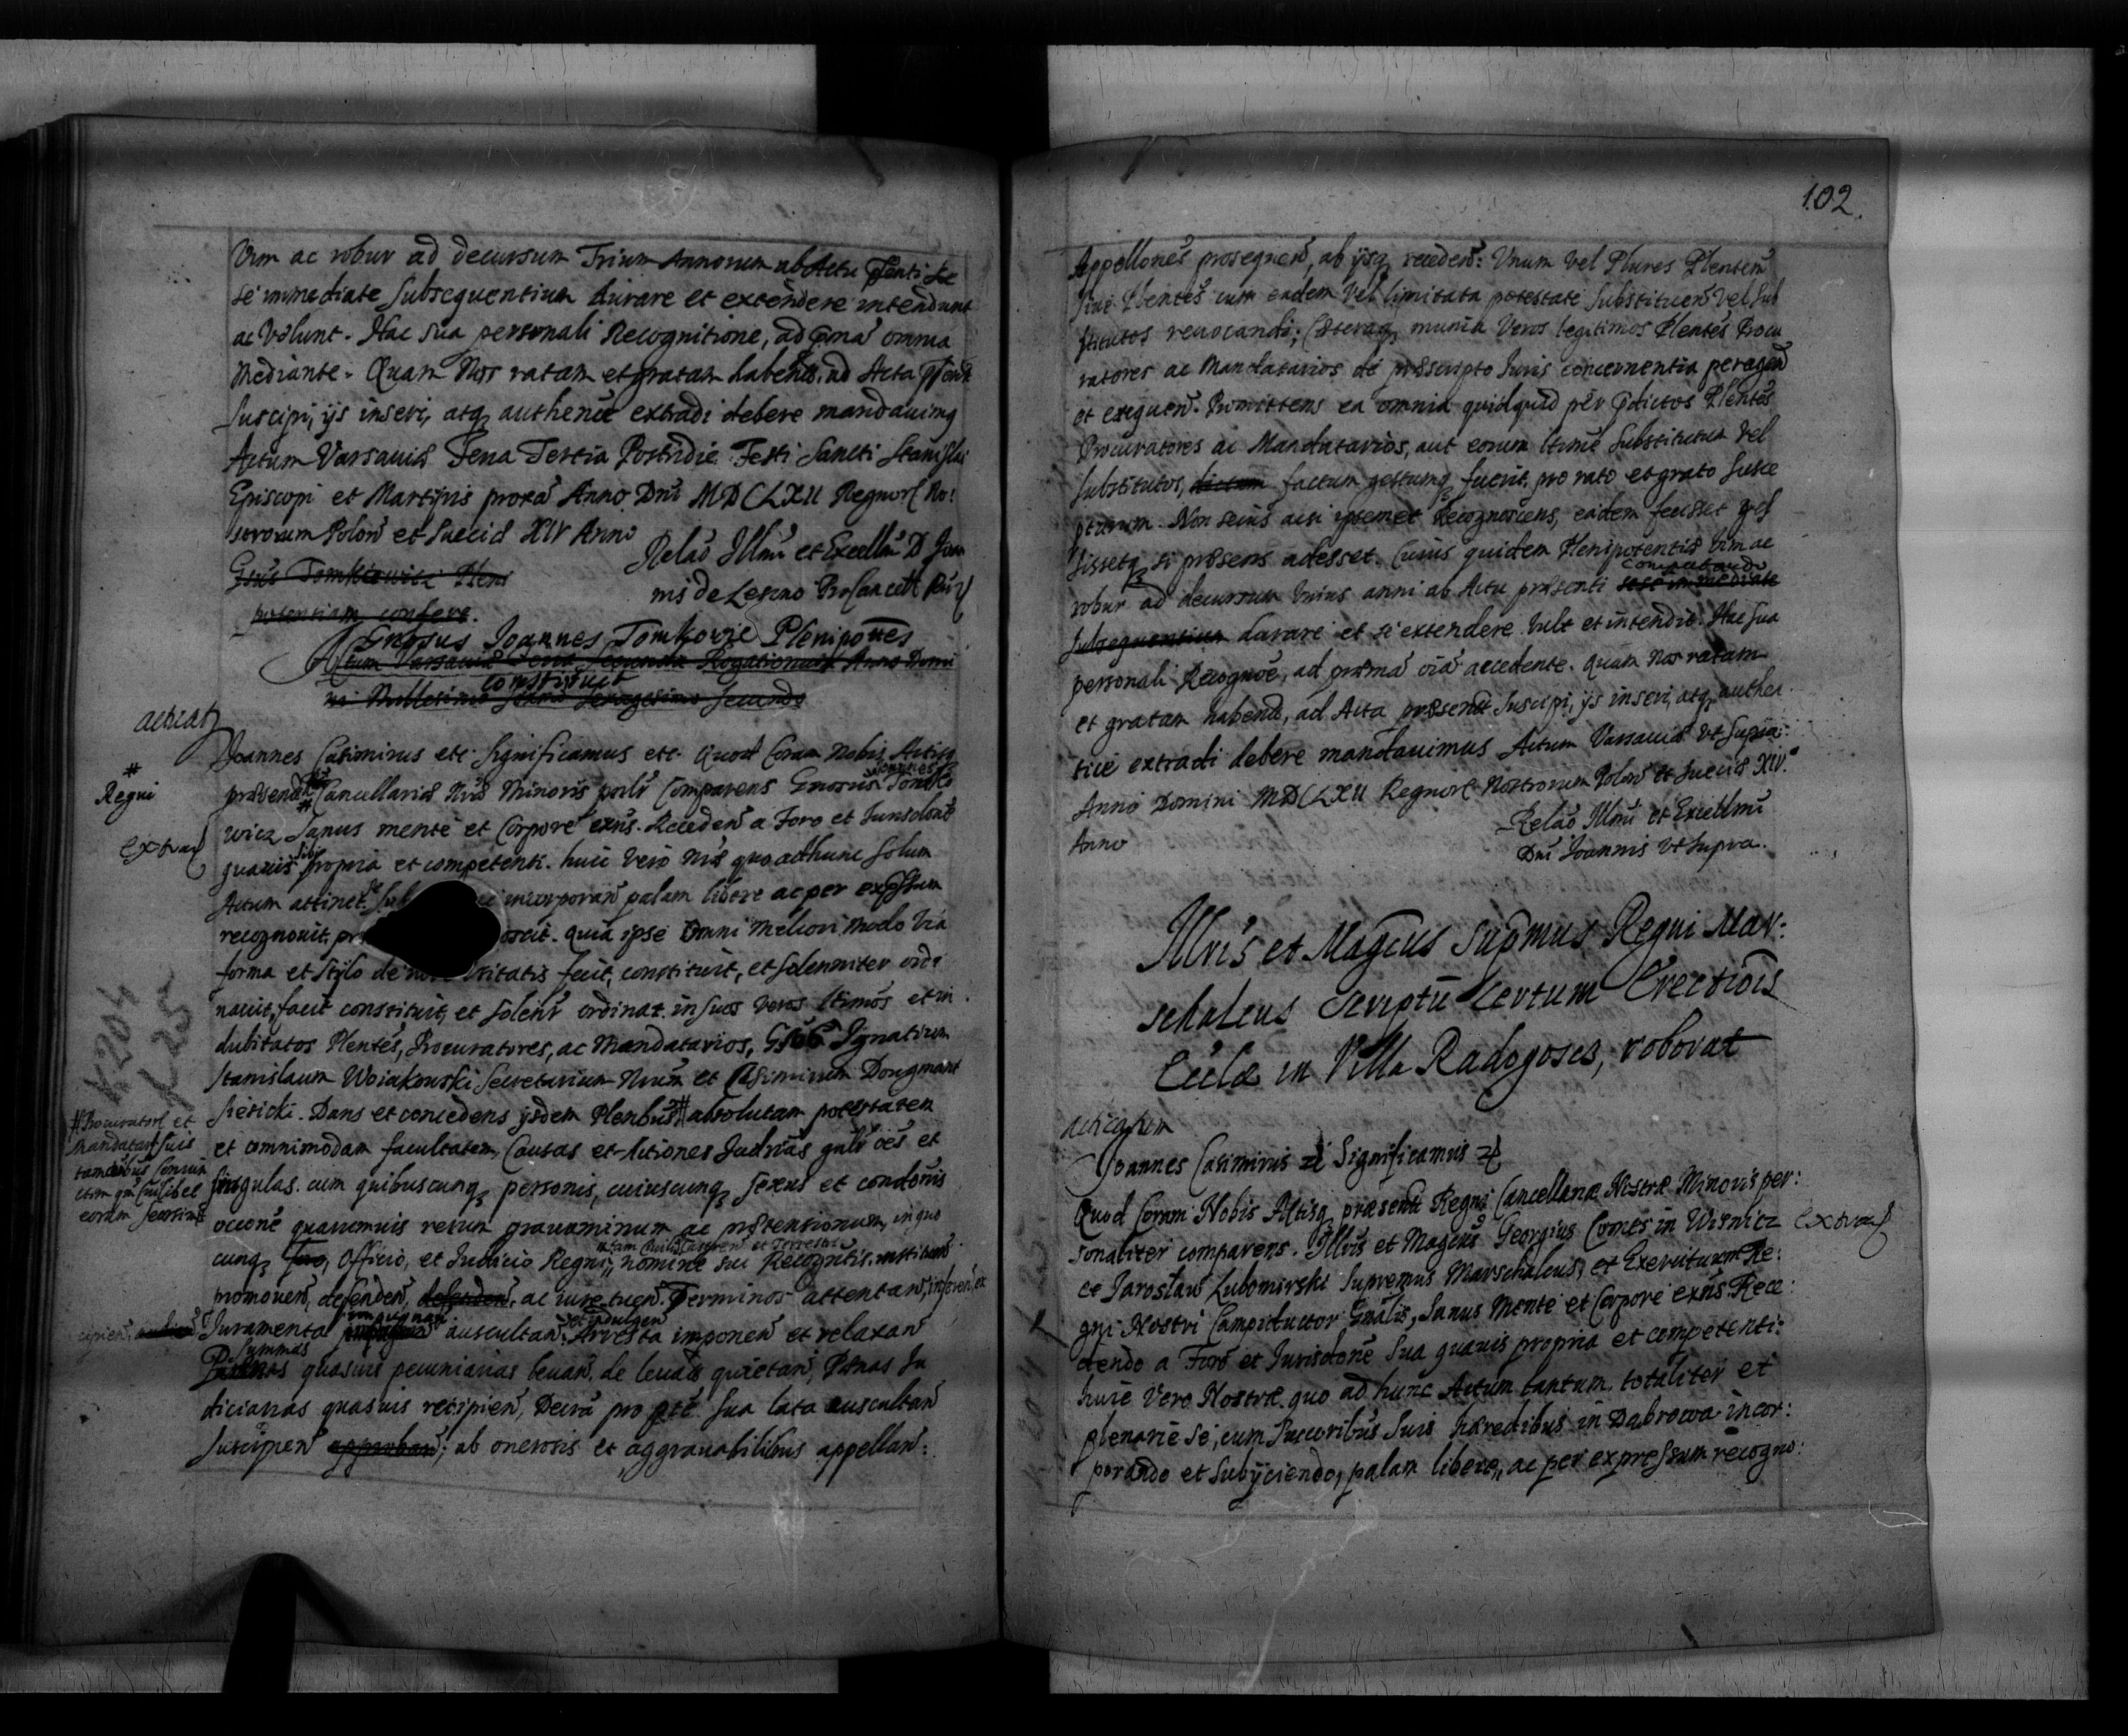 Vim ac robur ad decursum Trium Annorum ab Actu pñti se
se immediate subsequentium durare et extendere intendunt
ac Volunt. Hac sua personali Recognitione, ad pmā omnia
mediante. Quam Nos ratam et gratam habend. ad Acta pñtia
suscipi, ijs inseri, atq authenće extradi debere mandauimq
Actum Varsauiæ Feria Tertia Postridie Festi Sancti Stanislai
Episcopi et Martyris proxa Anno Dni MDCLXII Regnor No:
strorum Polon et Sueciæ XIV Anno
Relao Illmi et Excellmi D Joan
nis de Leszno Procancell Regni
Gnsus Tomkiewicz Pleni
potentiam confert.
Gnosus Joannes Tomkowic Plenipottes
Actum Varsauiæ Feria secunda Rogationum Anno Domi
constituit
ni Millesimo sexagesimo secundo
acticat
Joannes Casimirus etc. Significamus etc. Quod Coram Nobis Actisq
#
Regni
Cancellariæ Nræ Minoris psolr Comparens Gnosus Joannes Tomko
wicz Sanus mente et Corpore exñs. Receden a Foro et Iurisdone
extrad
quauis sibi propria et competenti. huic vero Nræ quo ad hunc solum
Actum attinet. se incorporan palam libere ac per expssum
recognouit. quia ipse Omni Meliori Modo Via
forma et stylo de fecit, constituit, et solenniter ordi
nauit, facit constituit, et solenr ordinat. in suos veros ltimos et in
dubitatos Plentes, Procuratores, ac Mandatarios, Gsos Ignatium
Stanislaum Woiakowski Secretarium Nrum et Casimirum Dougmant
Siesicki. Dans et concedens ijsdem Plenbus # absolutam potestatem
# Procuratorl et
Mandatar suis
tam oibus coniun
ctim qm cuilibet
eorum seorsim
et omnimodam facultatem, Causas et Actiones Iudrias gnlr oes et
singulas. cum quibuscunq personis, cuiuscunq sexus et condonis
occone quarumuis rerum grauaminum ac prætensionum, in quo
cunq foro, Officio, et Iudicio Regni, nomine sui Recogntis. instituen
promouen, defenden, defenden, ac iure tuen. Terminos attentan,
Iuramenta auscultan. Arresta imponen et relaxan
Summas
quasuis pecuniarias leuan, de leuatis quietan, Pænas Iu
diciarias quasuis recipien, Decra pro pte sua lata auscultan
suscipien approban; ab onerosis et aggrauabilibus appellan:
102.
Appellones prosequen, ab ijsq receden: Unum vel Plures Plentem
siue Plentes cum eadem vel limitata potestate substituen vel sub
stitutos reuocandi; Cæteraq munia Veros legitimos Plentes Procu
ratores ac Mandatarios de præscripto Iuris concernentia peragen
et exequen. Promittens ea omnia quidquid per pdictos Plentes
Procuratores ac Mandatarios, aut eorum ltime substitutum vel
substitutos, dictum factum gestumq fuerit, pro rato et grato susce
pturum. Non secus acsi ipsemet Recognoscens, eadem fecisset ges
sissetq si præsens adesset. Cuius quidem Plenipotentiæ Vim ac
computando
robur ad decursum Unius anni ab Actu præsenti sese immediate
subsequentium durare et se extendere Vult et intendit. Hac sua
personali Recogñoe, ad præma oia accedente. Quam Nos ratam
et gratam habend, ad Acta præsent suscipi, ijs inseri, atq authen
tice extradi debere mandauimus Actum Varsauiæ Vt supra
Anno Domini MDCLXII Regnorl Nostrorum Polon et Sueciæ XIV.
Anno
Relao Illmi et Excellmi
Dni Joannis Vt Supra.
Illris et Magcus Supmus Regni Mar:
schalcus Scriptu Certum Erectiois
Ecclæ in Villa Radogoscz, roborat
acticatum
Joannes Casimirus etc Significamus etc
Quod Coram Nobis Actisq præsent Regni Cancellariæ Nostræ Minoris per:
extrad
sonaliter comparens. Illris et Magcus Georgius Comes in Wisnicz
et Jaroslaw Lubomirski Supremus Marschalcus, et Exercituum Re:
gni Nostri Campiductor Gnalis, Sanus Mente et Corpore exñs. Rece:
dendo a Foro et Iurisdone Sua quauis propria et competenti:
huic Vero Nostræ quo ad hunc Actum tantum, totaliter et
plenarie se, cum Succoribus Suis hæredibus in Dabrowa incor:
porando et Subijciendo, palam libere, ac per expressum recogno: